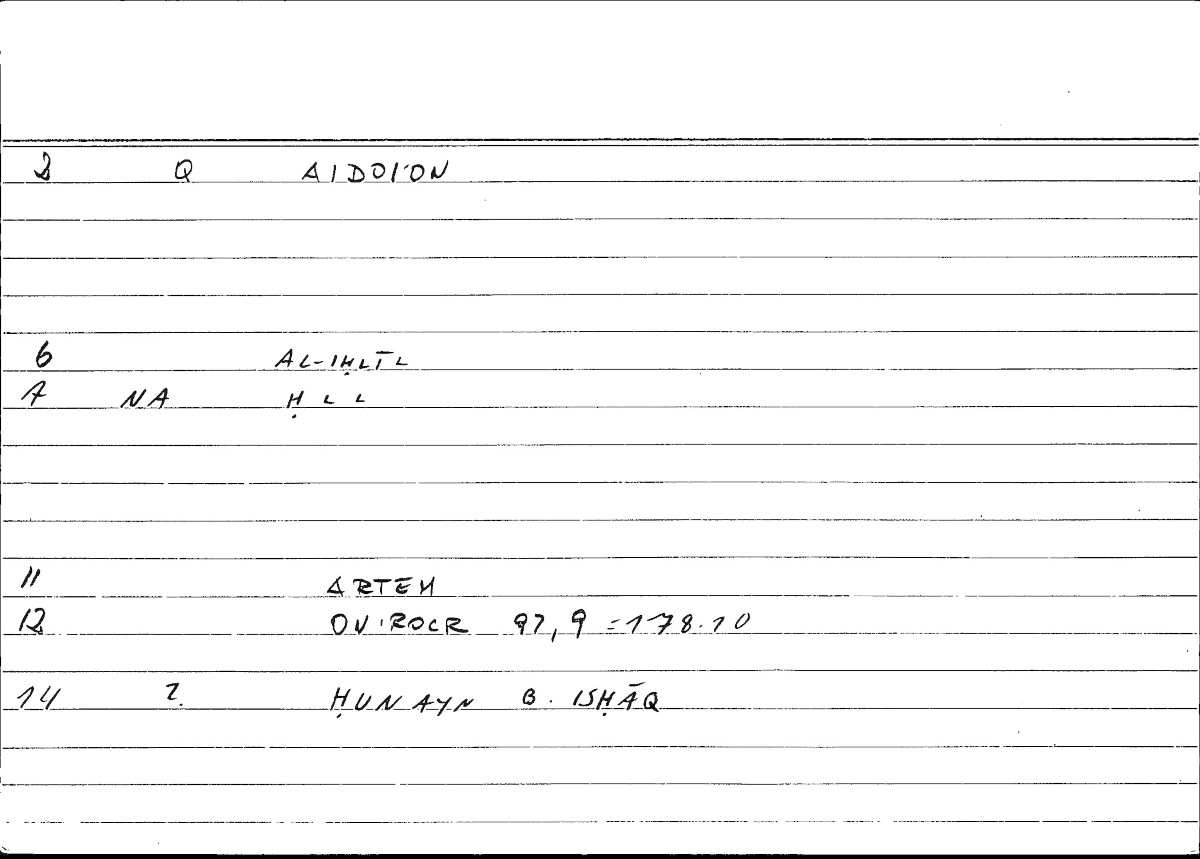 2 Q AIDOI'ON
6 AL-IḤLĪL
7 NA Ḥ L L
11 ARTEM
12 ON'ROCR 97,9 = 178.10
14 2. ḤUNAYN B. ISḤĀQ